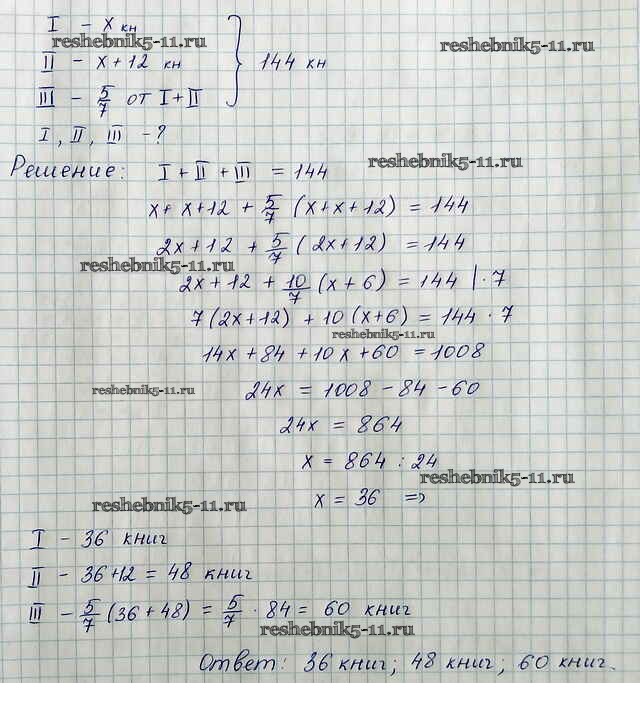 I - x кн
reshebnik5-11.ru
reshebnik5-11.ru
II - x+12 кн } 144 кн
III - 5/7 от I+II
I, II, III - ?
reshebnik5-11.ru
Решение: I + II + III = 144
x + x+12 + 5/7 (x+x+12) = 144
2x+12 + 5/7 (2x+12) = 144
reshebnik5-11.ru
2x+12 + 10/7 (x+6) = 144 | · 7
7(2x+12) + 10(x+6) = 144 · 7
reshebnik5-11.ru
14x + 84 + 10x + 60 = 1008
reshebnik5-11.ru
24x = 1008 - 84 - 60
24x = 864
x = 864 : 24
reshebnik5-11.ru
x = 36 =>
reshebnik5-11.ru
I - 36 книг
II - 36+12 = 48 книг
III - 5/7 (36+48) = 5/7 · 84 = 60 книг
reshebnik5-11.ru
Ответ: 36 книг; 48 книг; 60 книг.